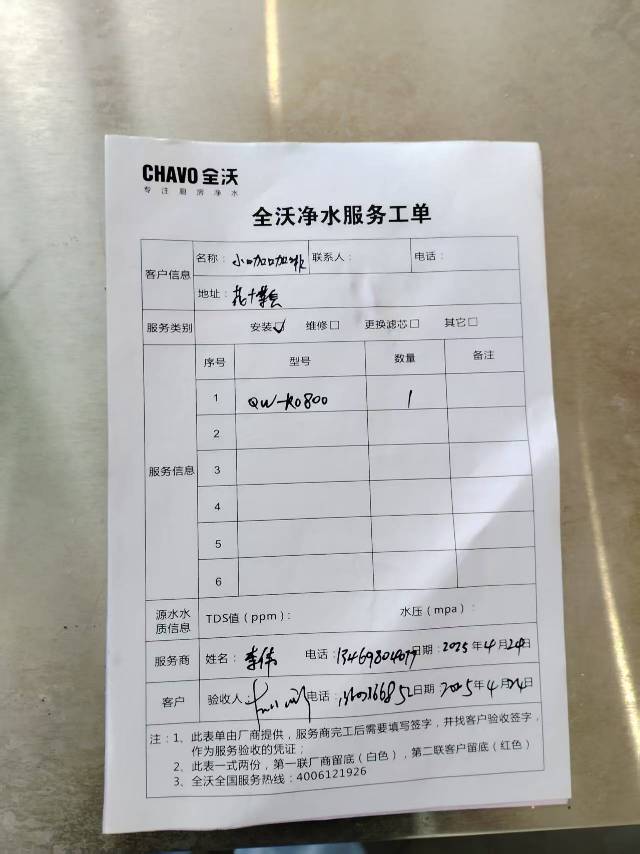 CHAVO 全沃
专注厨房净水
全沃净水服务工单
客户信息 名称： 小咖咖啡 联系人： 电话：
地址：
服务类别 安装☑ 维修□ 更换滤芯□ 其它□
服务信息 序号 型号 数量 备注
1 QW-RO800 1
2
3
4
5
6
源水水质信息 TDS值（ppm）： 水压（mpa）：
服务商 姓名： 李伟 电话： 日期：2025年4月24日
客户 验收人： 电话： 日期 2025年4月24日
注：1、此表单由厂商提供，服务商完工后需要填写签字，并找客户验收签字，
作为服务验收的凭证；
2、此表一式两份，第一联厂商留底（白色），第二联客户留底（红色）
3、全沃全国服务热线：4006121926